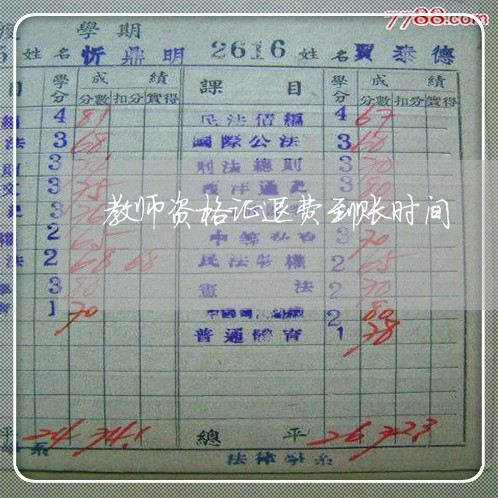 7788.com
學期
姓名 忻鼎明 2616 姓名 賈泰德
目 學分 成績 課目 學分 成績
分數 扣分 實得 分數 扣分 實得
4 81 民法債編 4 67
法 3 68 國際公法 3 60
3 刑法總則 3 70
文 3 75 西洋通史 3
教师资格证退费到账时间
2 65 3 70
法 2 68 68 民法物權 2 65
3 80 憲法 2 70
1 70 2 80
普通體育 1 78
平 24 74.1 總平 26 72.3
系 法律學系